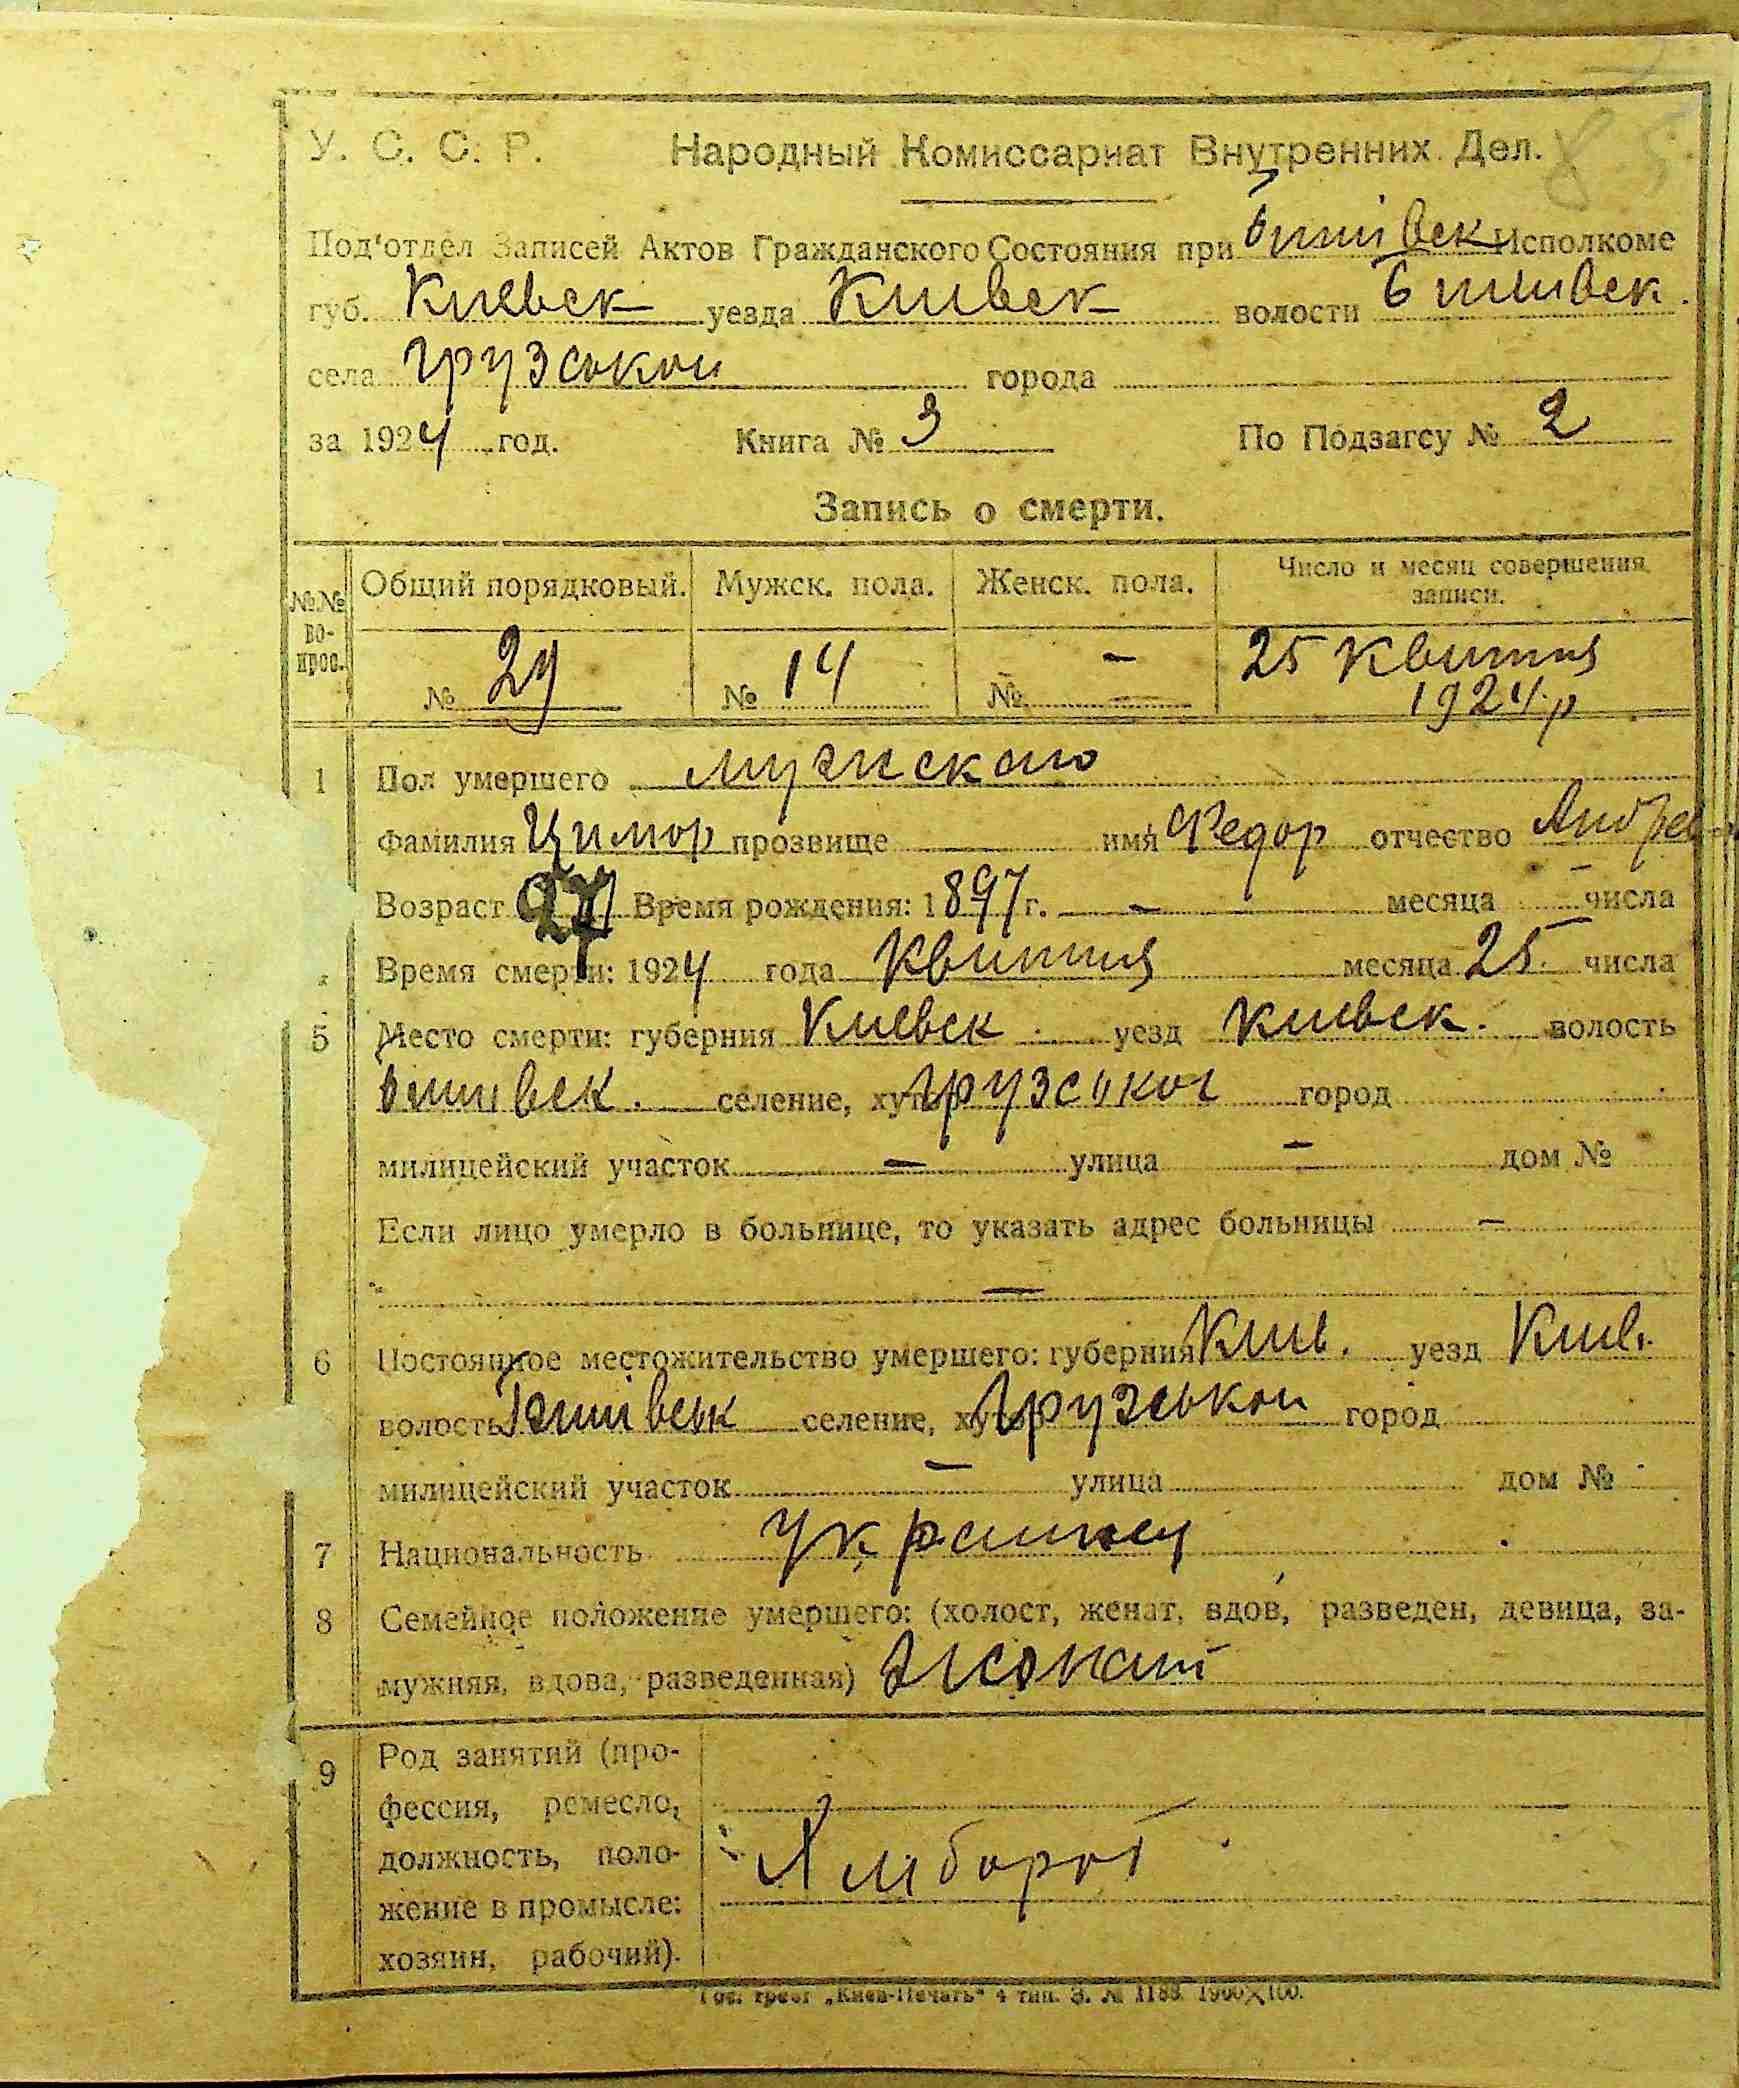 85
У. С. С. Р. Народный Комиссариат Внутренних Дел.
Под'отдел Записей Актов Гражданского Состояния при Бишівск Исполкоме
губ. Киевск уезда Киивск волости Бишивск.
села Грузской города
за 1924 год. Книга № 3 По Подзагсу № 2
Запись о смерти.
№№ во-прос. Общий порядковый. Мужск. пола. Женск. пола. Число и месяц совершения записи.
№ 29 № 14 № - 25 Квитня 1924 р
1 Пол умершего мужскаго
Фамилия Цимор прозвище имя Федор отчество Андрев
Возраст 27 Время рождения: 1897 г. - месяца - числа
Время смерти: 1924 года Квитня месяца 25 числа
5 Место смерти: губерния Киевск уезд Киевск. волость
Бишивск. селение, хутор Грузської город
милицейский участок - улица - дом №
Если лицо умерло в больнице, то указать адрес больницы -
-
6 Постоянное местожительство умершего: губерния Киив. уезд Киів.
волость Бишівськ селение, хутор Грузськои город
милицейский участок - улица дом №
7 Национальность Украинец
8 Семейное положение умершего: (холост, женат, вдов, разведен, девица, за-
мужняя, вдова, разведенная) Жонат
9 Род занятий (про-
фессия, ремесло,
должность, поло-
жение в промысле:
хозяин, рабочий).
Хлібороб
Гос. трест „Киев-Печать" 4 тип. З. № 1188. 1900×100.